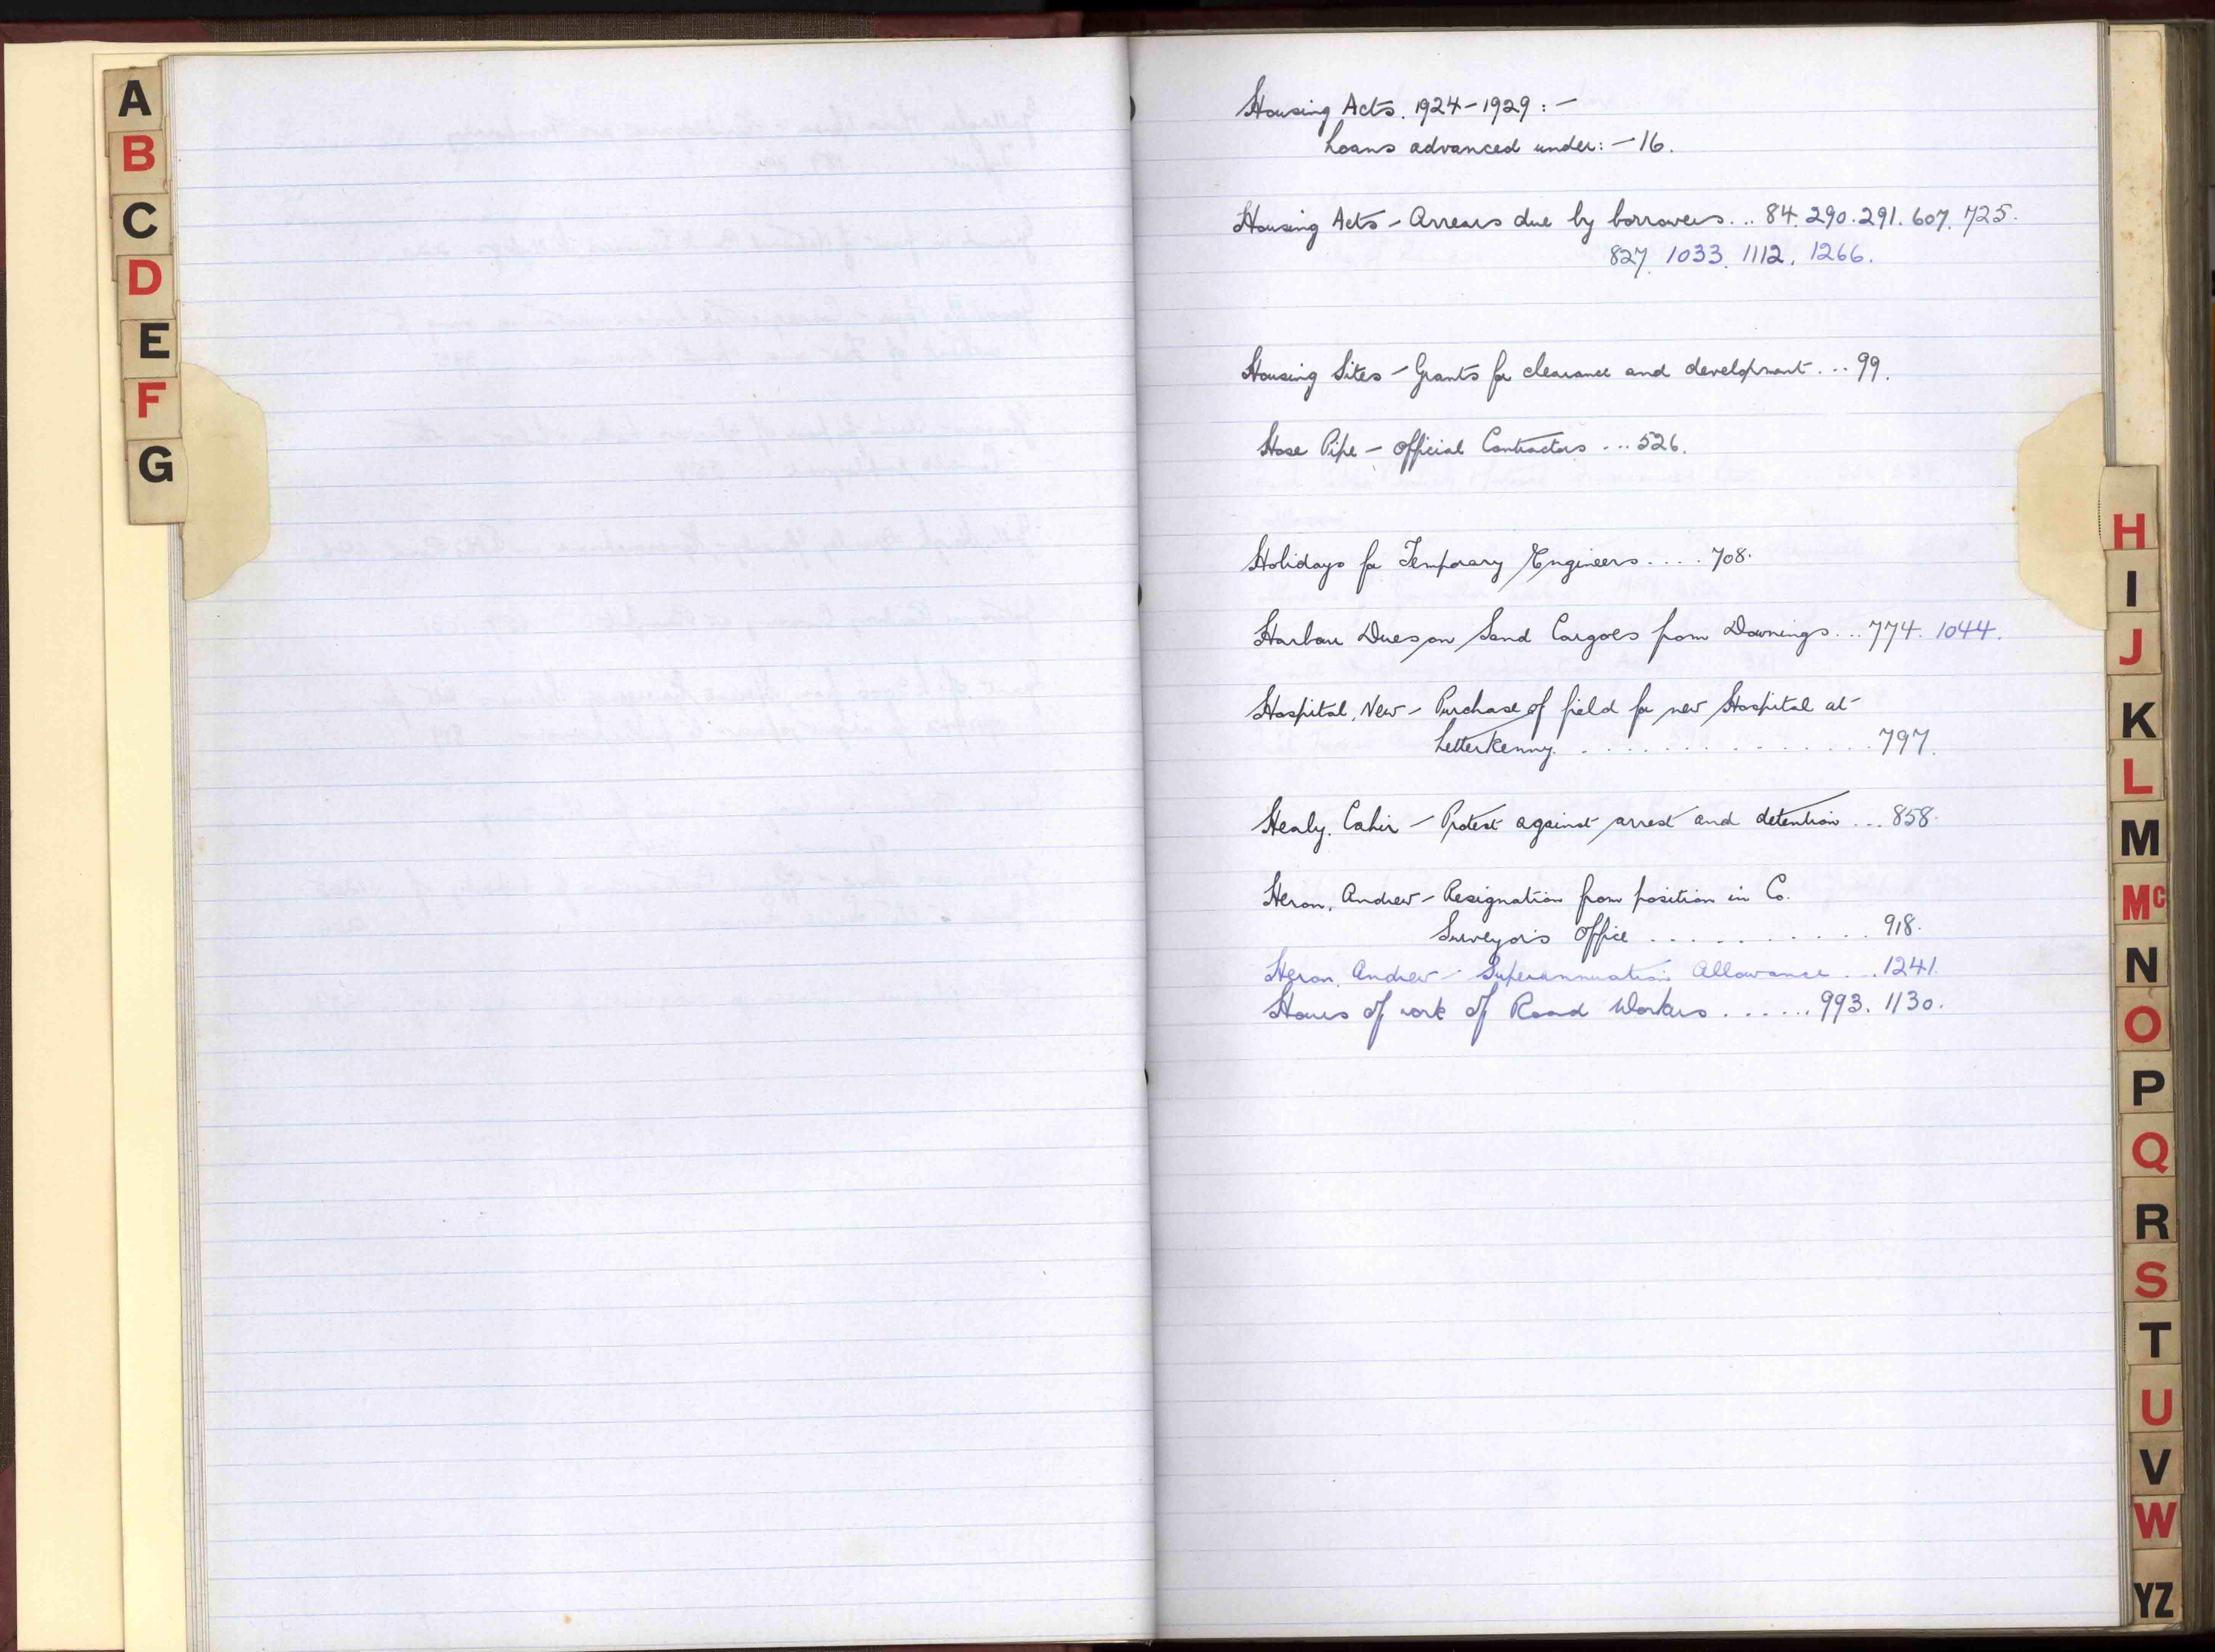 A
B
C
D
E
F
G
Housing Acts. 1924-1929 : -
Loans advanced under: - 16.
Housing Acts - Arrears due by borrowers... 84. 290. 291. 607. 725.
827. 1033. 1112. 1266.
Housing Sites - Grants for clearance and development... 99.
Hose Pipe - Official Contractors ... 526.
Holidays for Temporary Engineers.... 708.
Harbour Dues on Sand Cargoes from Downings... 774. 1044.
Hospital, New - Purchase of field for new Hospital at
Letterkenny. . . . . . . . . . . . . . . . 797.
Healy, Cahir - Protest against arrest and detention ... 858.
Heron, Andrew - Resignation from position in Co.
Surveyor's Office . . . . . . . . . . 918.
Heron, Andrew - Superannuation Allowance ... 1241.
Hours of work of Road Workers ...... 993. 1130.
H
I
J
K
L
M
Mc
N
O
P
Q
R
S
T
U
V
W
YZ